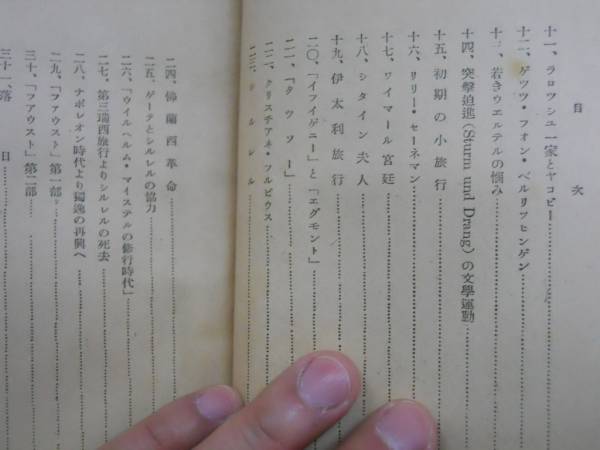 目次
十一、ラロツシユ一家とヤコビー
十二、ゲツツ・フオン・ベルリツヒンゲン
十三、若きウエルテルの悩み
十四、突撃迫進(Sturm und Drang)の文學運動
十五、初期の小旅行
十六、リリー・セーネマン
十七、ワイマール宮廷
十八、シタイン夫人
十九、伊太利旅行
二〇、「イフイゲニー」と「エグモント」
二一、「タツソー」
二二、クリスチアネ・フルピウス
二三、シルレル
二四、佛蘭西革命
二五、ゲーテとシルレルの協力
二六、「ウイルヘルム・マイステルの修行時代」
二七、第三瑞西旅行よりシルレルの死去
二八、ナポレオン時代より獨逸の再興へ
二九、「フアウスト」第一部
三十、「フアウスト」第二部
三十一、落日